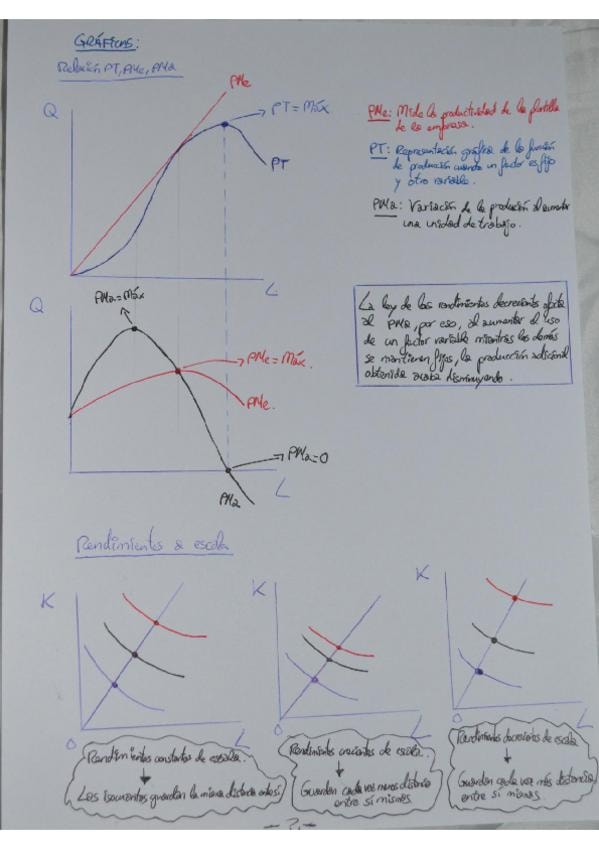 GRÁFICAS:
Relación PT, PMe, PMa
PMe
Q
PT = Máx
PT
L
PMe: Mide la productividad de la plantilla
de la empresa.
PT: Representación gráfica de la función
de producción cuando un factor es fijo
y otro variable.
PMa: Variación de la producción al aumentar
una unidad de trabajo.
Q
PMa = Máx
PMe = Máx.
PMe.
PMa = 0
PMa
L
La ley de los rendimientos decrecientes afecta
al PMa, por eso, al aumentar el uso
de un factor variable mientras los demás
se mantienen fijos, la producción adicional
obtenida acaba disminuyendo.
Rendimientos a escala
K
L
0
Rendimientos constantes de escala.
Las isocuantas guardan la misma distancia entre sí
K
L
0
Rendimientos crecientes de escala.
Guardan cada vez menos distancia
entre sí mismas.
K
L
0
Rendimientos decrecientes de escala
Guardan cada vez más distancia
entre sí mismas
- 2 -